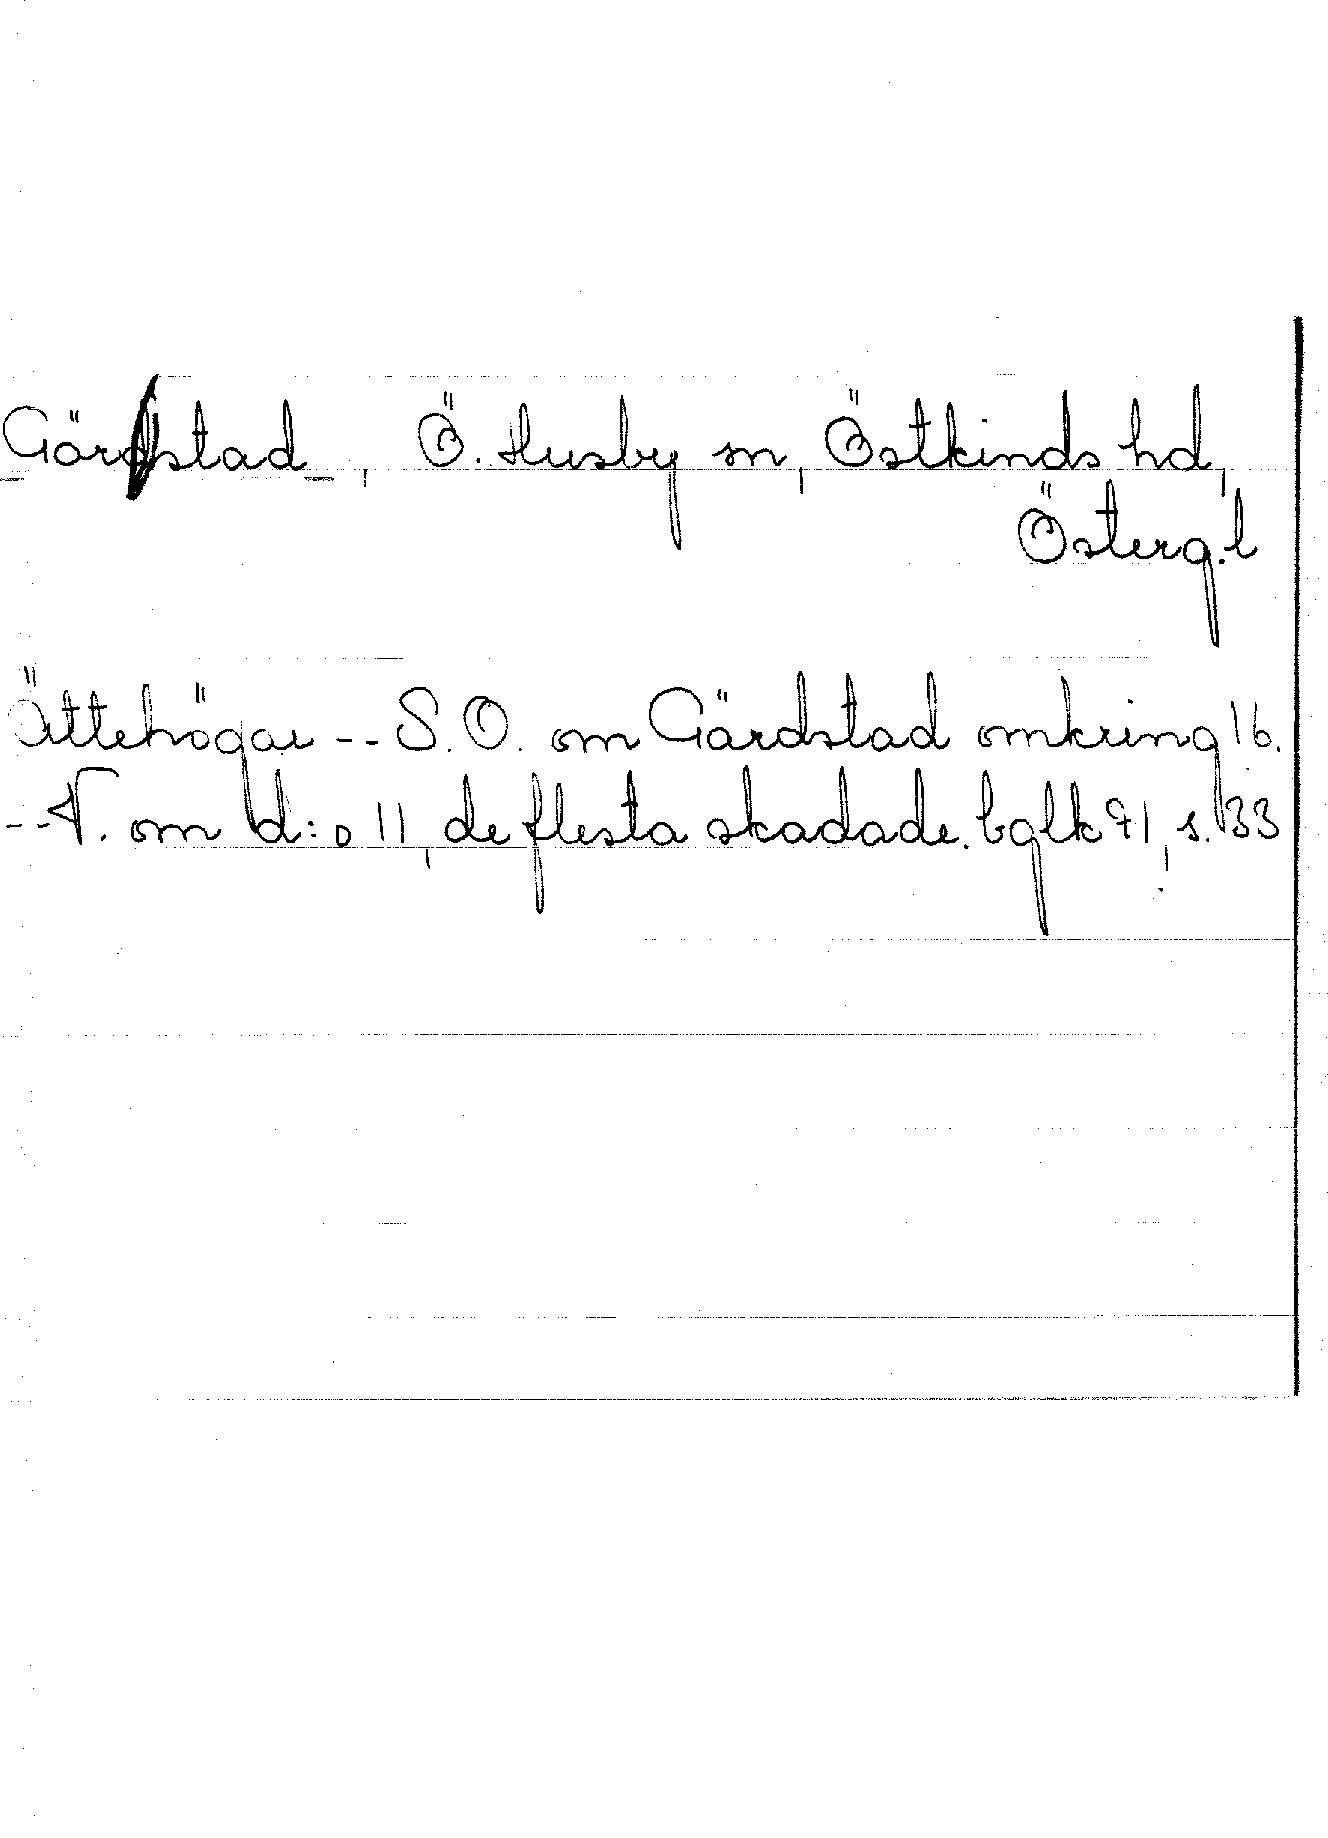 Gärdstad, Ö. Husby sn, Östkinds hd,
Österg.l
Ättehögar -- S.O. om Gärdstad omkring 16.
-- N. om d:o 11, de flesta skadade. bglk 91, s. 33